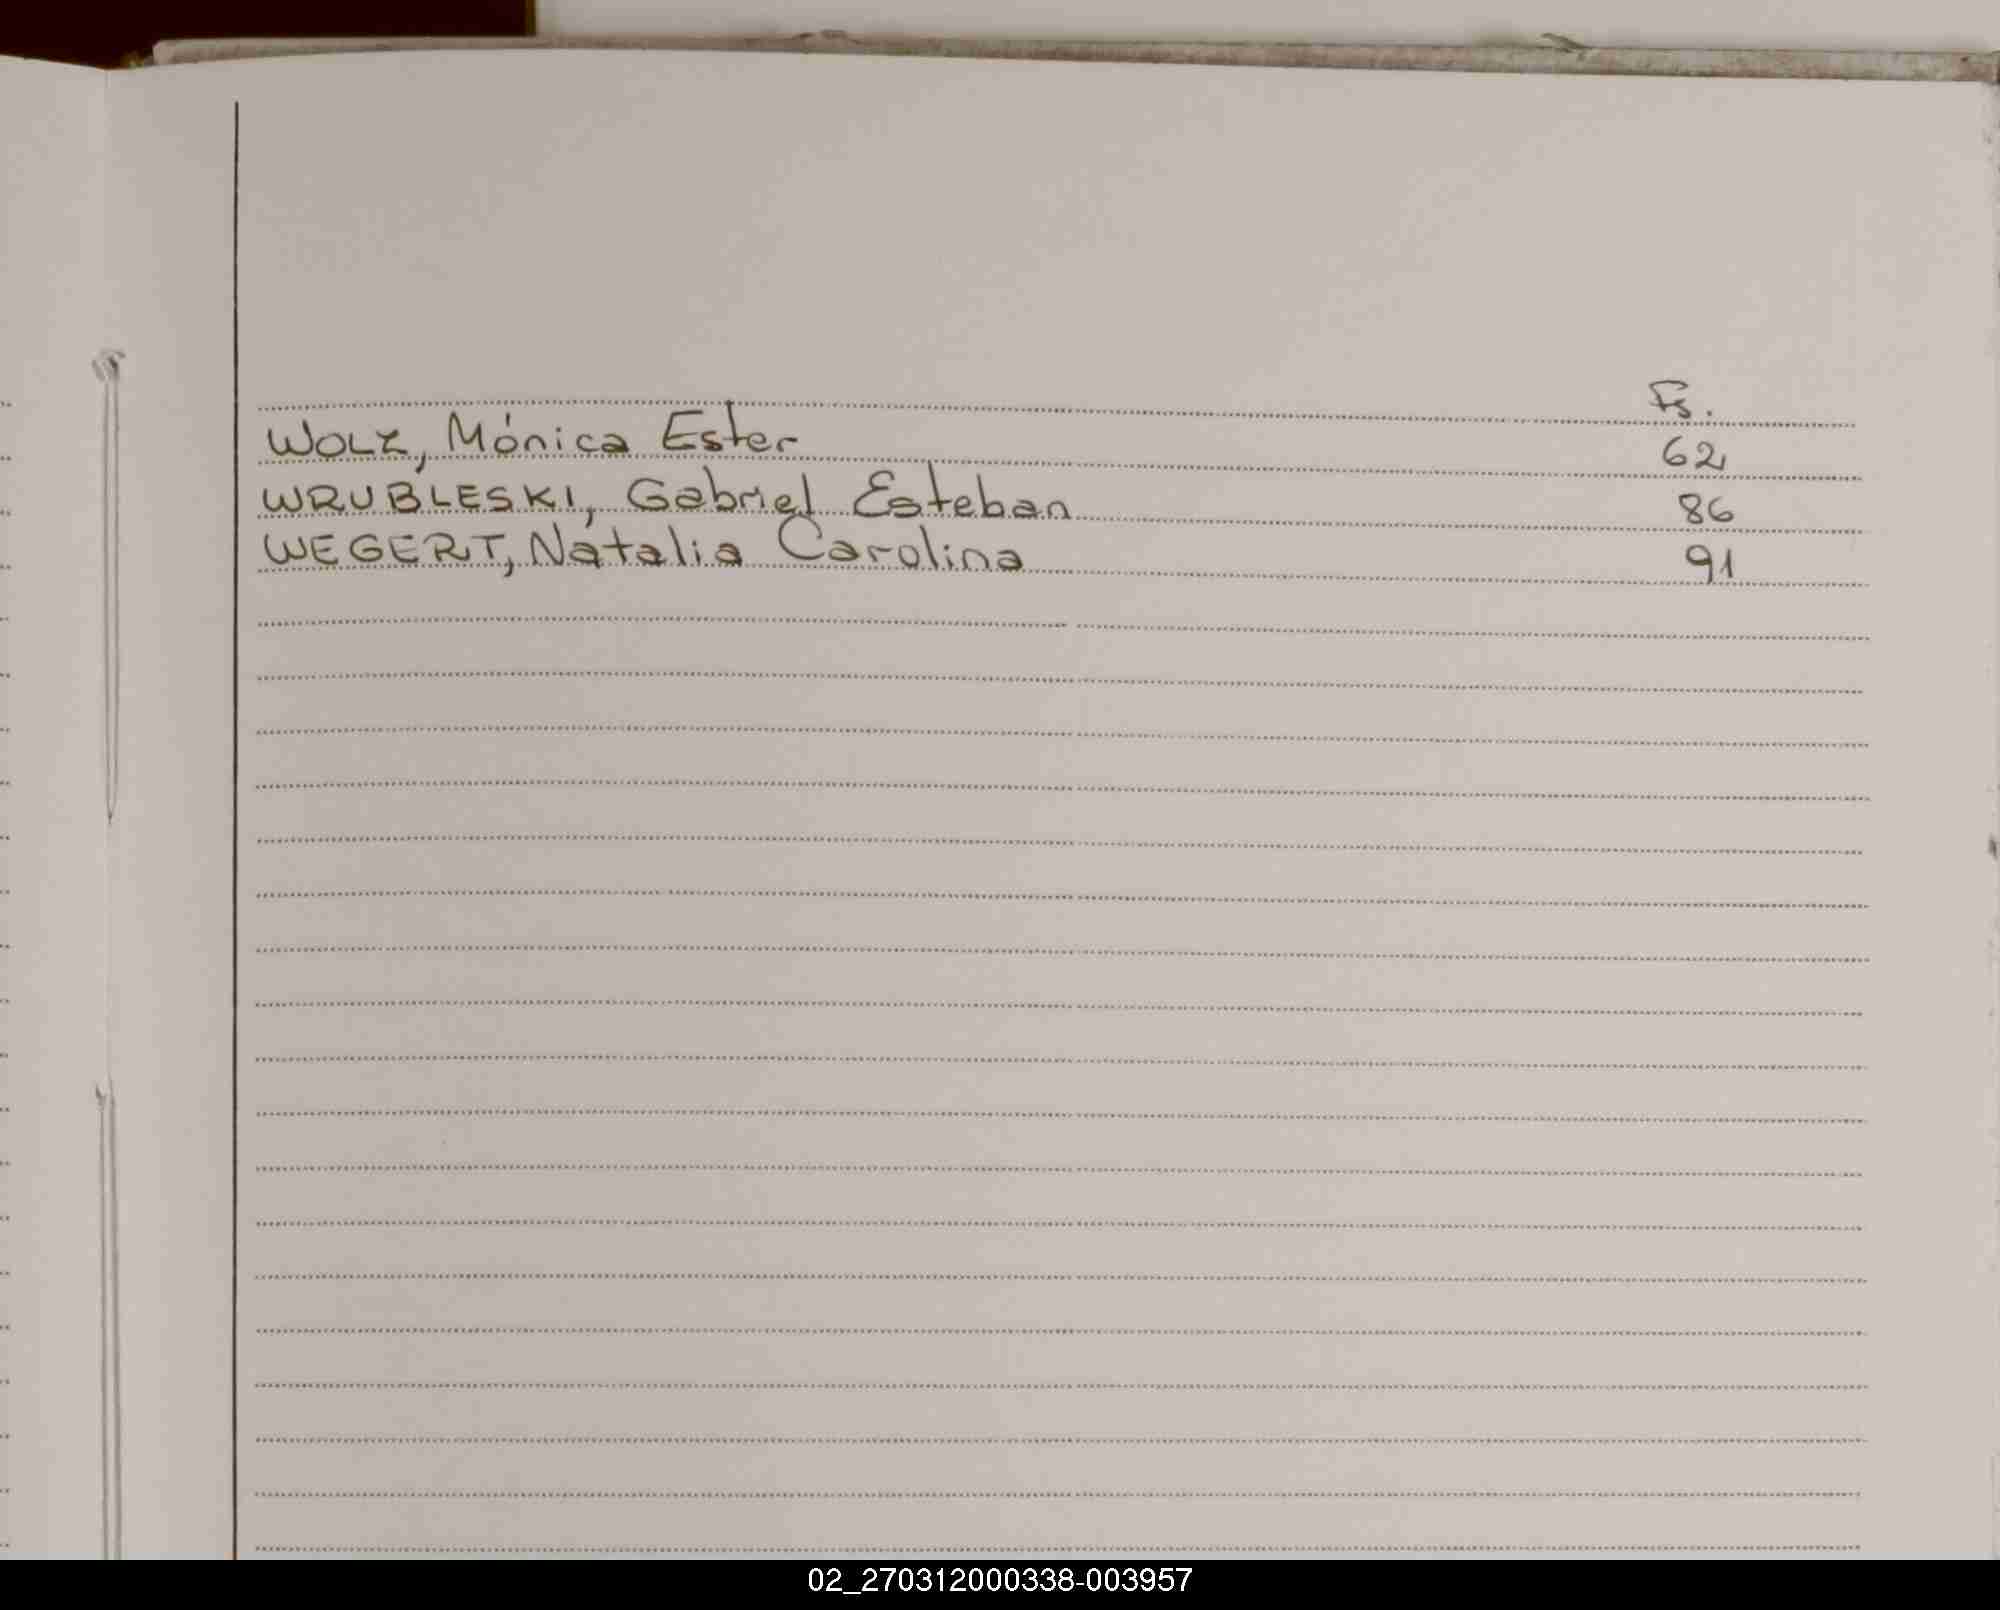 Fs.
WOLZ, Mónica Ester 62
WRUBLESKI, Gabriel Esteban 86
WEGERT, Natalia Carolina 91
02_270312000338-003957